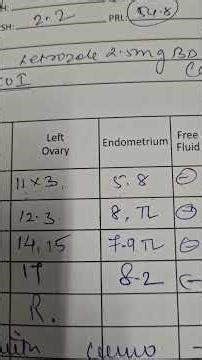 SH: 2.2 PRL: 54.8
Letrozole 2.5mg BD
Left Ovary Endometrium Free Fluid
11 x 3 5.8
12.3 8, TL
14, 15 7.9 TL
17 8.2
R.